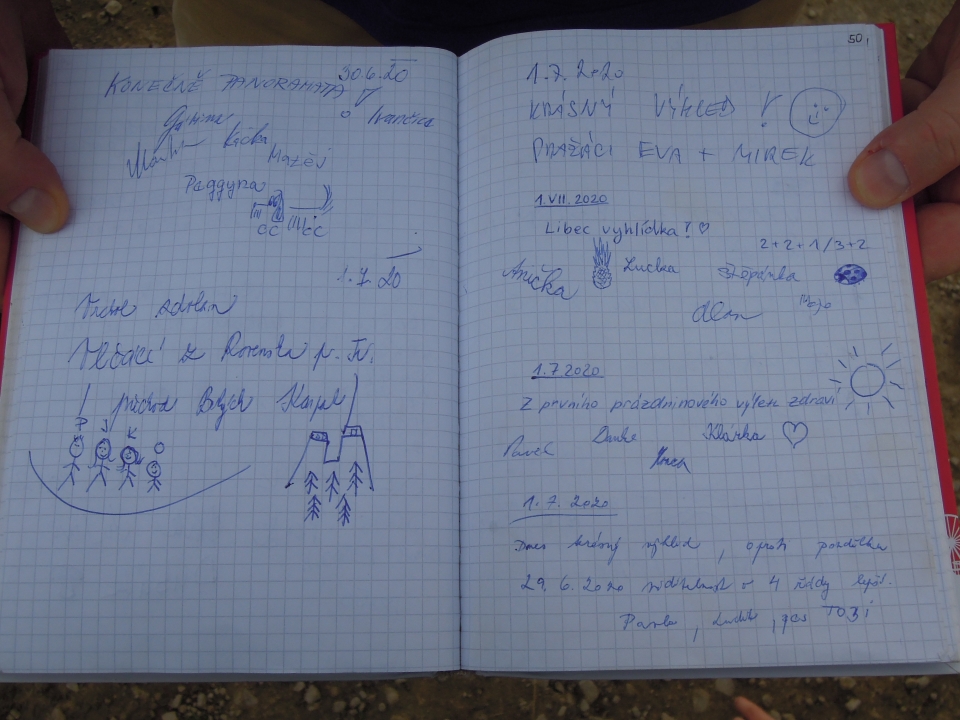 30.6.20
KONEČNĚ PANORAMATA
Ivanečka
Kačka
Matěj
Paggyna
CC CC
1.7.20
z p. Tr.
Bílých Karpat
50,
1.7.2020
KRÁSNÝ VÝHLED !
PRAŽÁCI EVA + MIREK
1.VII.2020
Líbec vyhlídka! ♡
2+2+1/3+2
Anička Lucka Štěpánka
Alan
1.7.2020
Z prvního prázdninového výletu zdraví
Pavel Klárka ♡
1.7.2020
Dnes krásný výhled, oproti pondělku
29.6.2020 viditelnost o 4 řády lepší.
Pavla, Luděk, pes TOBI